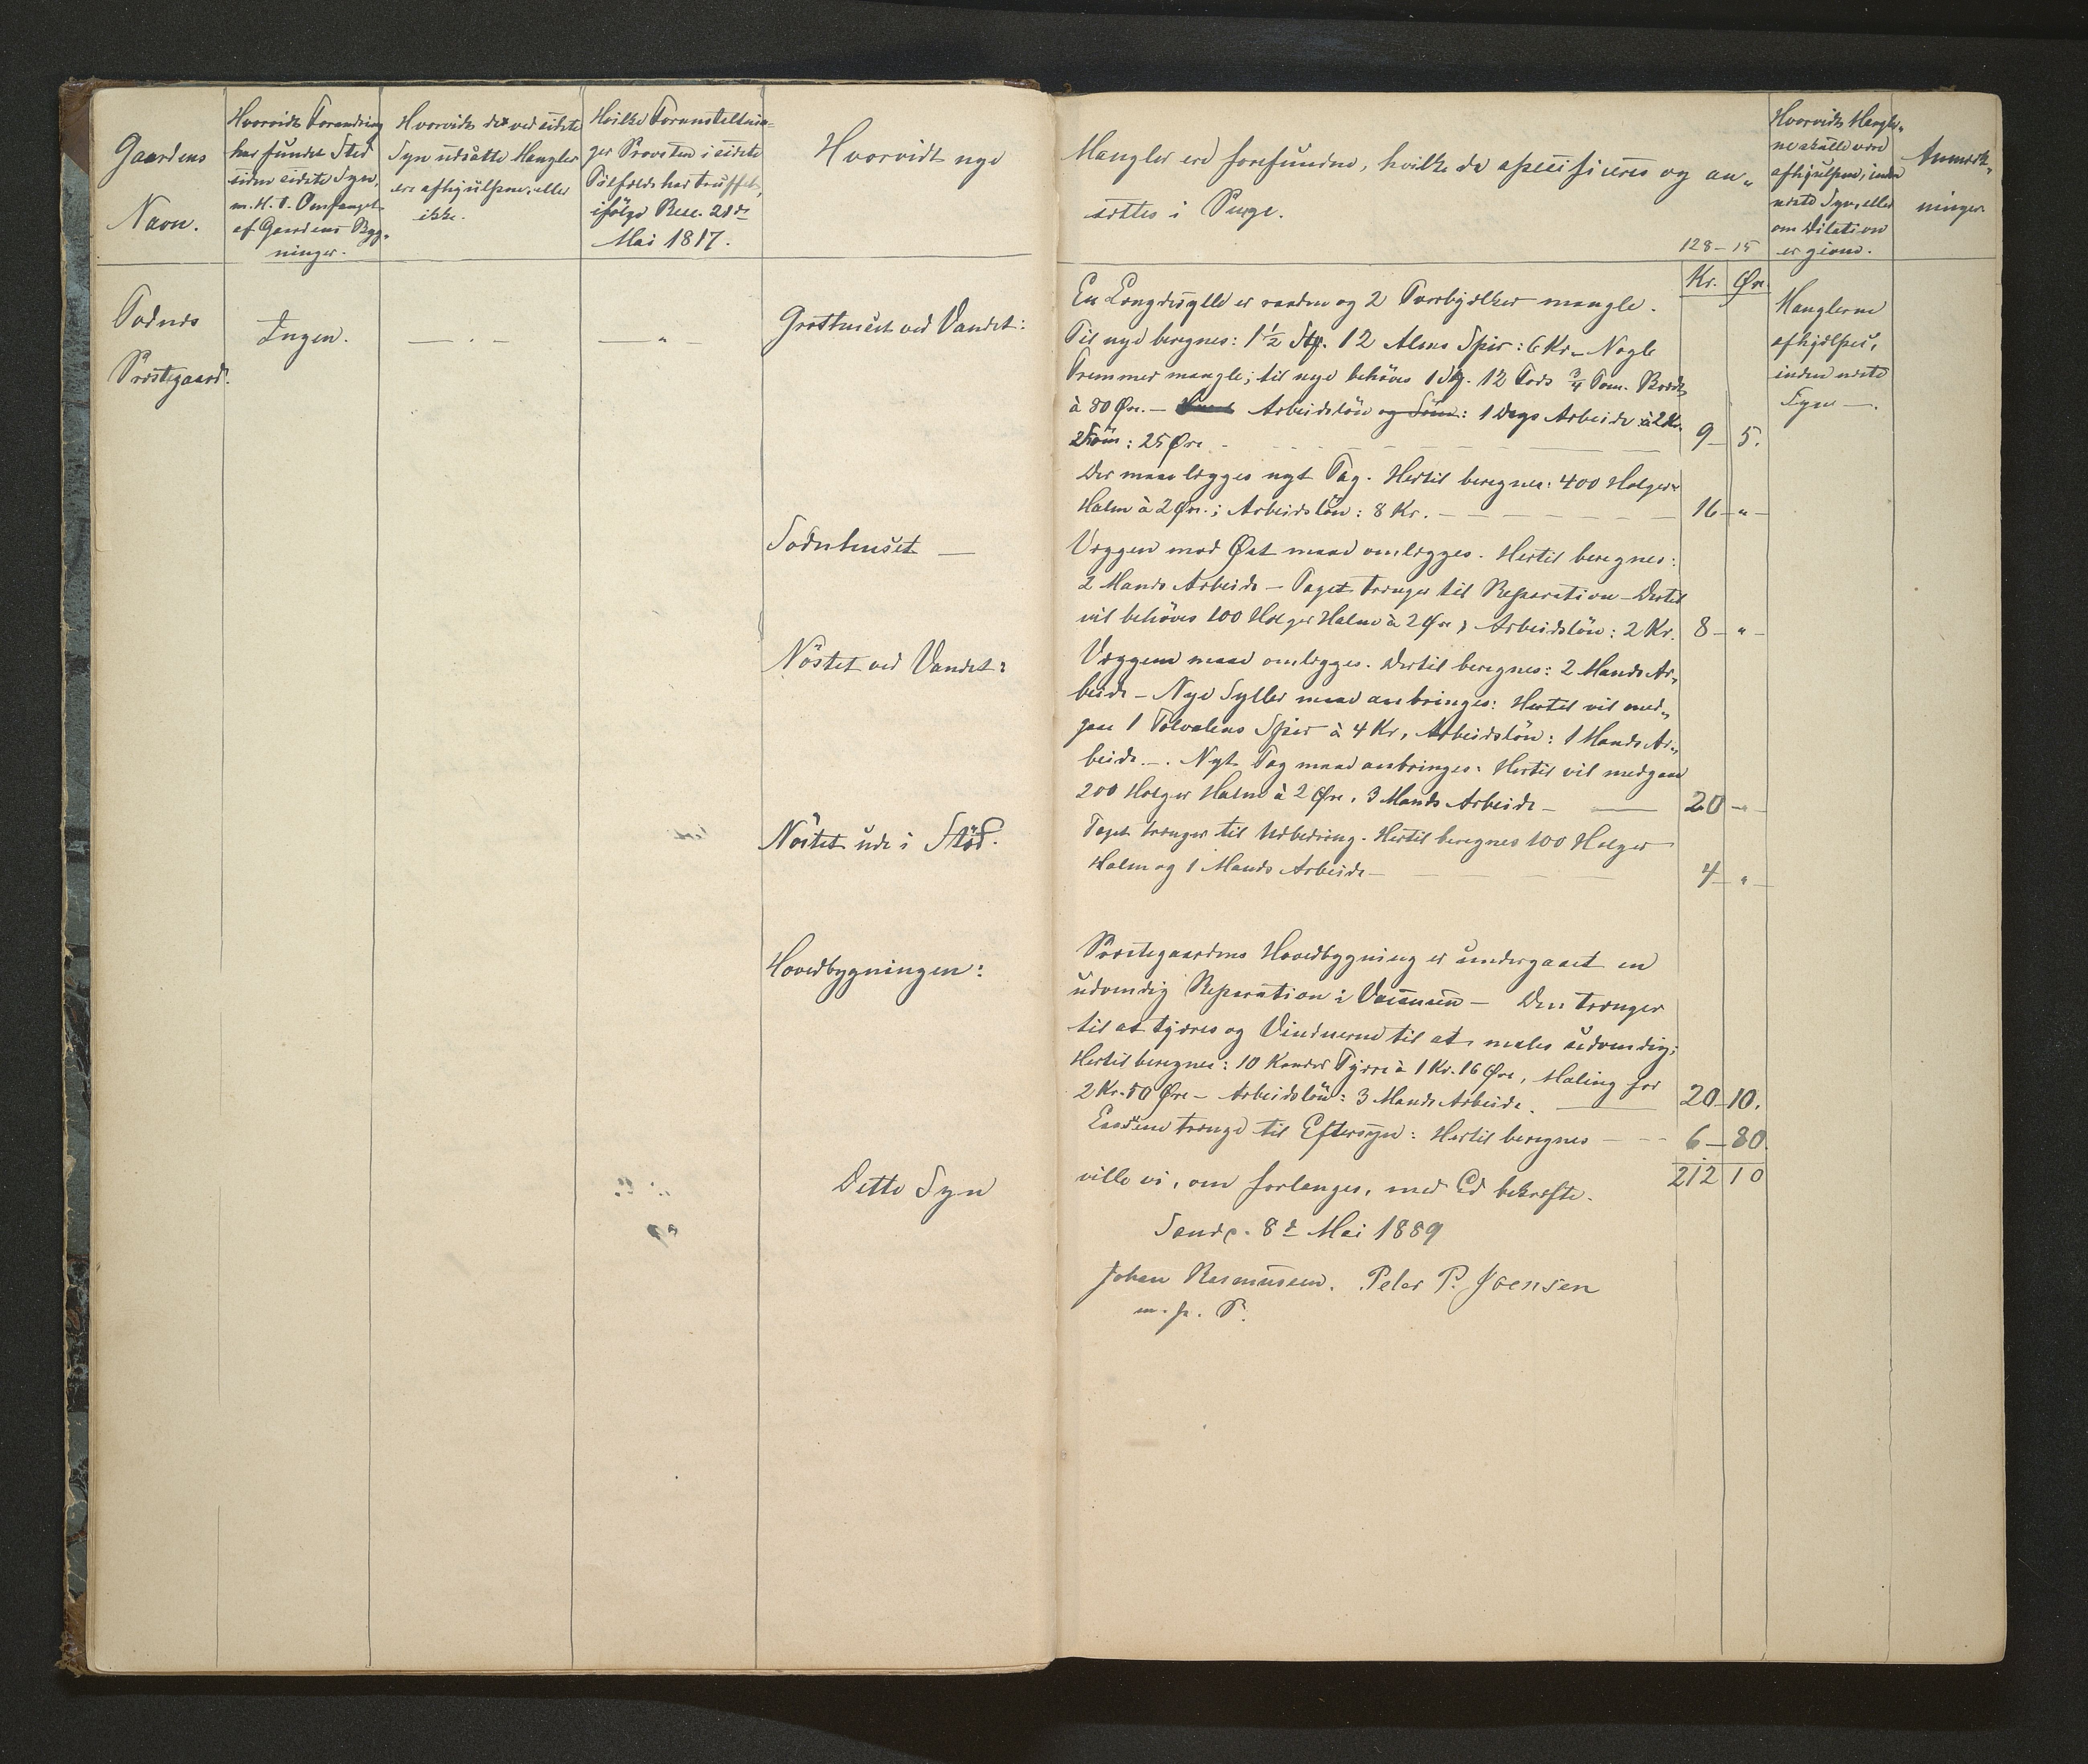 Gaardens
Navn.
Hvorvidt Forandring
har fundet Sted
siden sidste Syn,
m. H. t. Omfanget
af Gaardens Byg-
ninger.
Hvorvidt de ved sidste
Syn udsatte Mangler
ere afhjulpne, eller
ikke.
Hvilke Foranstaltnin-
ger Provsten i sidste
Tilfælde har truffet,
ifölge Rescr. 21de
Mai 1817.
Hvorvidt nye
Mangler ere forefundne, hvilke da specificeres og an-
sættes i Penge.
128 - 15
Hvorvidt Mangler-
ne skulle være
afhjulpne, inden
næste Syn, eller
om Dilation
er given.
Anmærk-
ninger
Kr. Øre
Præstegaard.
Ingen.
Gröthuset ved Vandet:
En Langdsylle er raaden og 2 Tværbjælker mangle.
Til nye beregnes: 1½ Stk. 12 Alens Spir: 6 Kr. - Nogle
Tremmer mangle; til nye behöves 1 Stk. 12 Fods ¾ Tom. Bord
à 80 Øre. - Arbeidslön og Söm: 1 Dags Arbeide à 2 Kr.
Söm: 25 Øre 9 - 5.
Der maa lægges nyt Tag. Hertil beregnes: 400 Holger
Halm à 2 Øre.; Arbeidslön: 8 Kr. 16 - " -
Sodnhuset -
Væggen mod Øst maae omlægges. Hertil beregnes:
2 Mands Arbeide - Taget trænger til Reparation - Dertil
vil behöves 100 Holger Halm à 2 Øre, Arbeidslön: 2 Kr. 8 - " -
Nöstet ved Vandet:
Væggene maae omlægges. Dertil beregnes: 2 Mands Ar-
beide - Nye Syller maae anbringes: Hertil vil med-
gaae 1 Tolvalens Spir à 4 Kr, Arbeidslön: 1 Mands Ar-
beide. -. Nyt Tag maae anbringes. Hertil vil medgaae
200 Holger Halm à 2 Øre, 3 Mands Arbeide - 20 - -
Nöstet ude i Stöd.
Taget trænger til Udbedring. Hertil beregnes 100 Holger
Halm og 1 Mands Arbeide - 4 - " -
Hovedbygningen:
Præstegaardens Hovedbygning er undergaaet en
udvendig Reparation i - Den trænger
til at tjæres og Vinduerne til at males udvendig;
Hertil beregnes: 10 Kander Tjære à 1 Kr. 16 Øre, Maling for
2 Kr. 50 Øre - Arbeidslön: 3 Mands Arbeide. 20 - 10.
trænge til Eftersyn: Hertil beregnes - - - 6 - 80.
212 10
Dette Syn
ville vi, om forlanges, med Ed bekræfte.
Sand, 8de Mai 1889
Johan Rasmussen. Peter P. Joensen
m. f. P.
Manglerne
afhjælpes,
inden næste
Syn -.